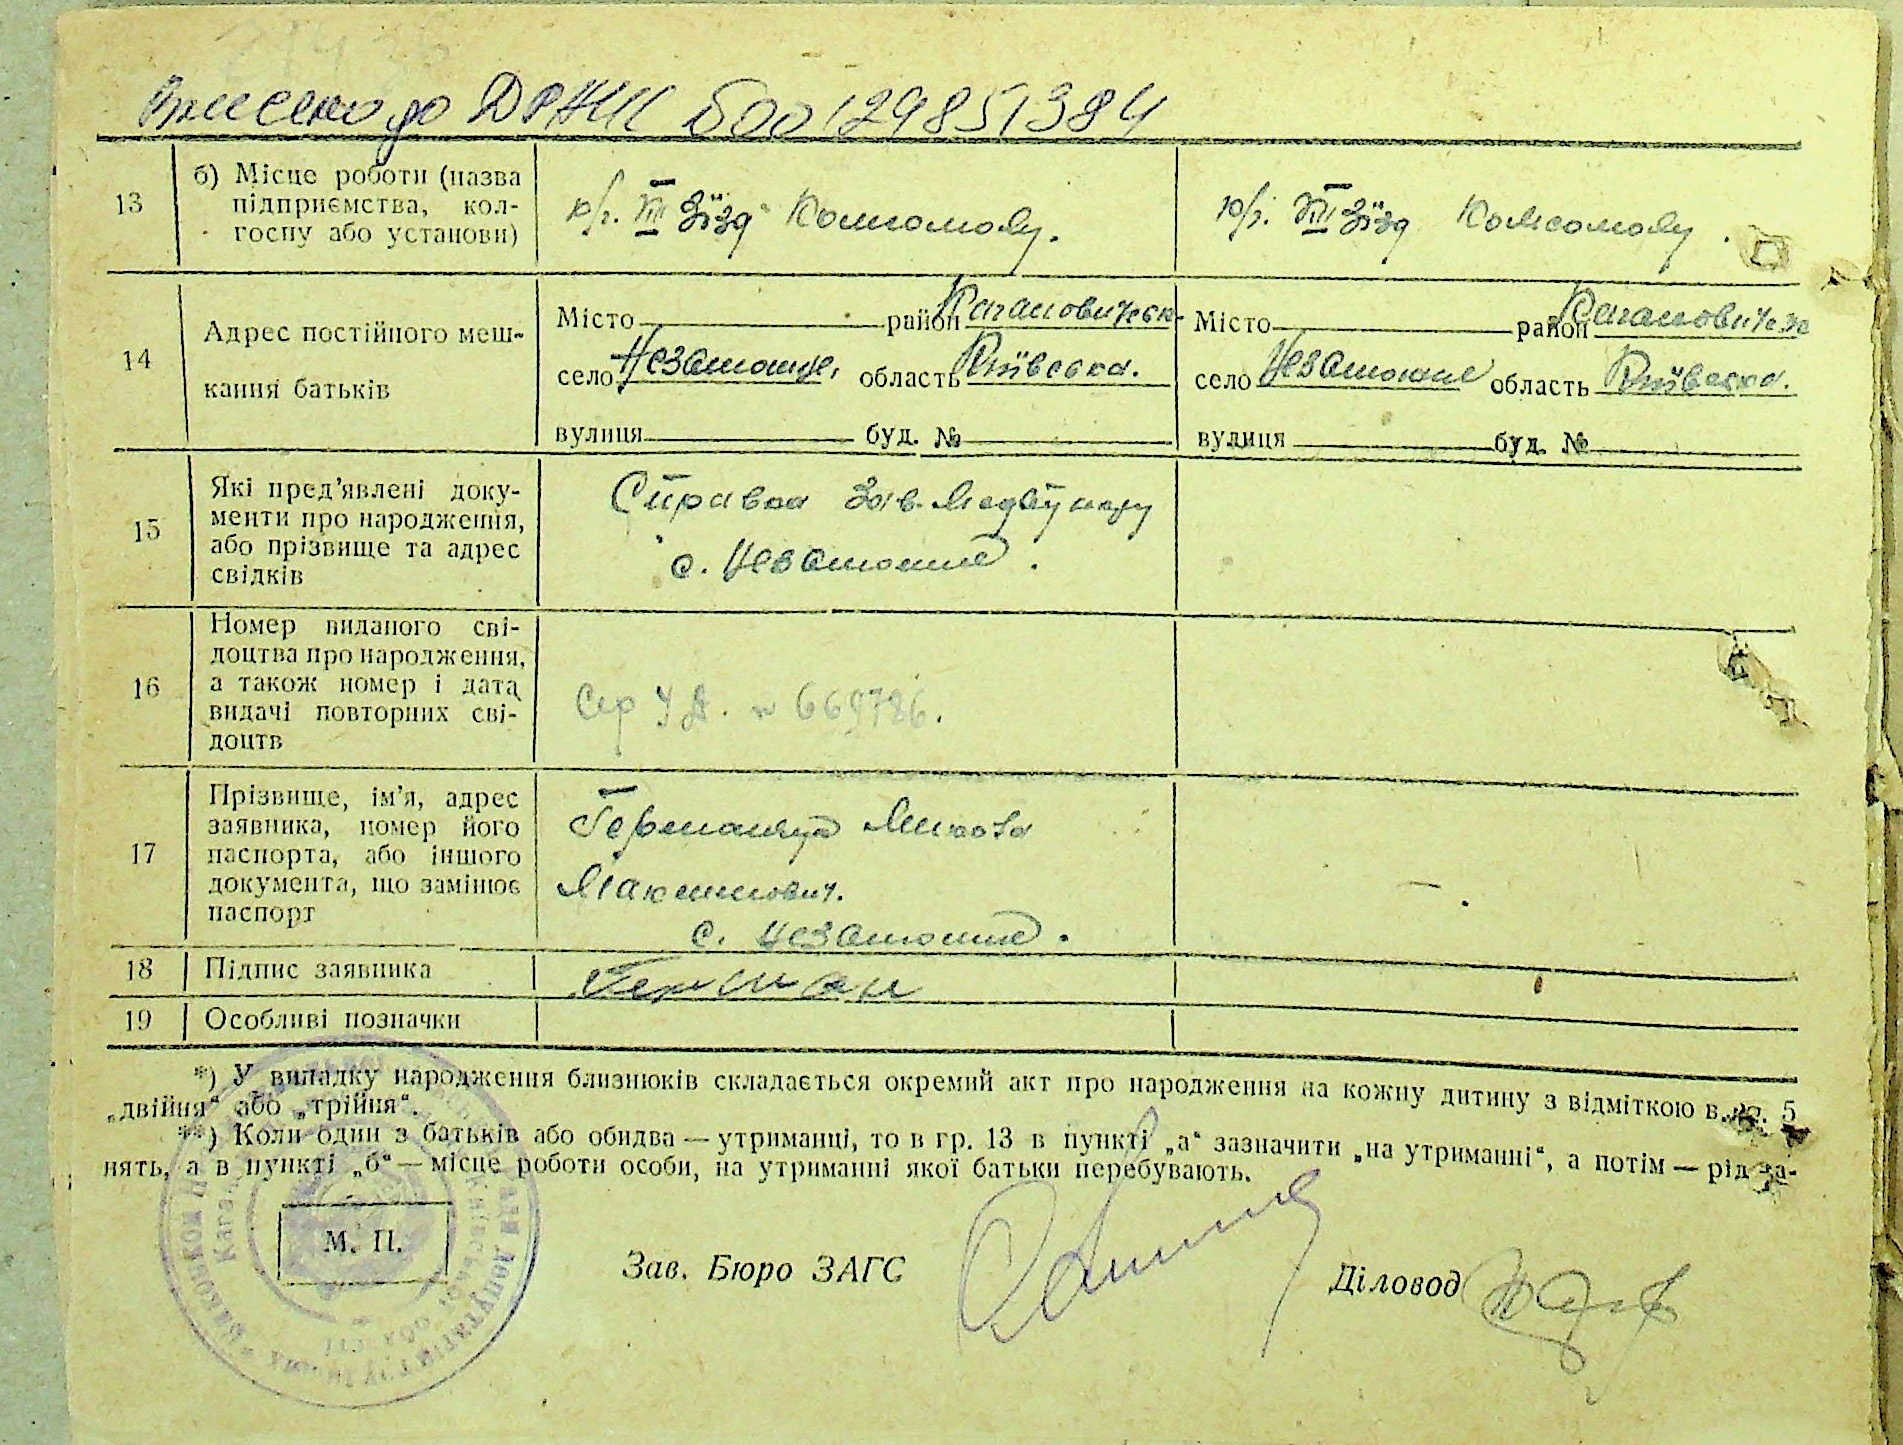 Внесено до ДРАЦС 00129851384
13 б) Місце роботи (назва підприємства, кол-
госпу або установи)
к/г. VIII Зїзд Комсомолу.
к/г. VIII Зїзд Комсомолу.
14 Адрес постійного меш-
кання батьків
Місто район Кагановичськ.
село область Київська.
вулиця буд. №
Місто район
село область Київська.
вулиця буд. №
15 Які пред'явлені доку-
менти про народження,
або прізвище та адрес
свідків
Справка Зав. Медпункту
с.
16 Номер виданого сві-
доцтва про народження,
а також номер і дата
видачі повторних сві-
доцтв
Сер УА. № 669786.
17 Прізвище, ім'я, адрес
заявника, номер його
паспорта, або іншого
документа, що замінює
паспорт
Микола
Максимович.
с.
18 Підпис заявника
Герман
19 Особливі позначки
*) У випадку народження близнюків складається окремий акт про народження на кожну дитину з відміткою в 5
„двійня“ або „трійня“.
**) Коли один з батьків або обидва — утриманці, то в гр. 13 в пункті „а“ зазначити „на утриманні“, а потім — рід за-
нять, а в пункті „б“ — місце роботи особи, на утриманні якої батьки перебувають.
М. П.
Зав. Бюро ЗАГС
Діловод